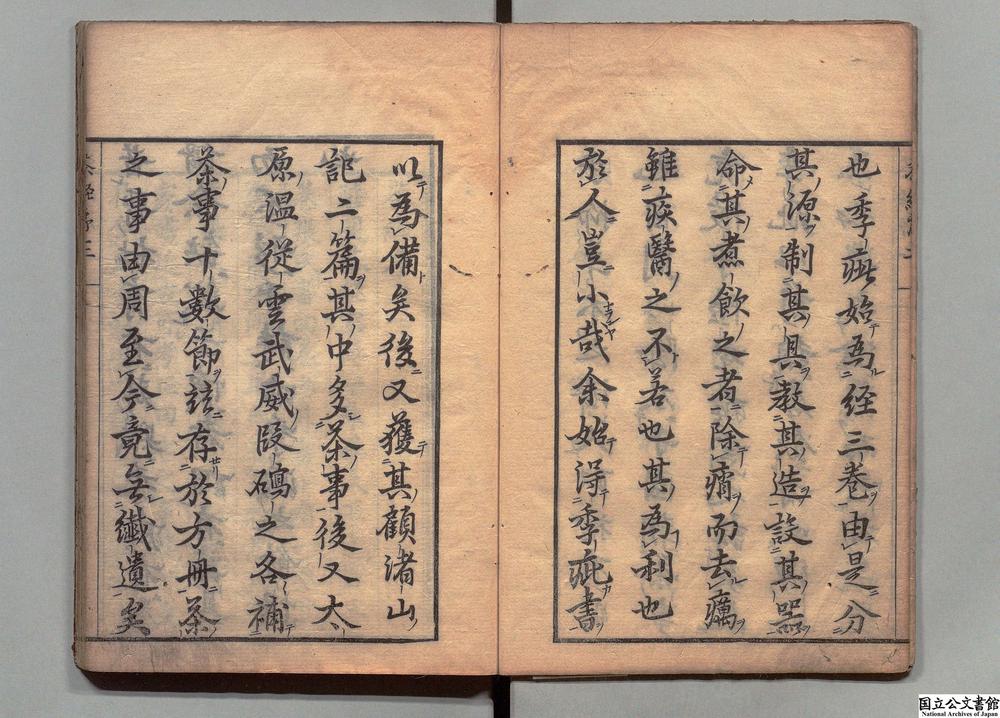 也季疵始為経三巻由是分
其源制其具教其造設其器
命其煮飲之者除痟而去癘
雖疾醫之不若也其為利也
於人豈小哉余始淂季疵書
以為備矣後又獲其顧渚山
記二篇其中多茶事後又太
原温從雲武威段碣之各補
茶事十數節竝存於方冊茶
之事由周至今竟無纎遺矣
国立公文書館
National Archives of Japan